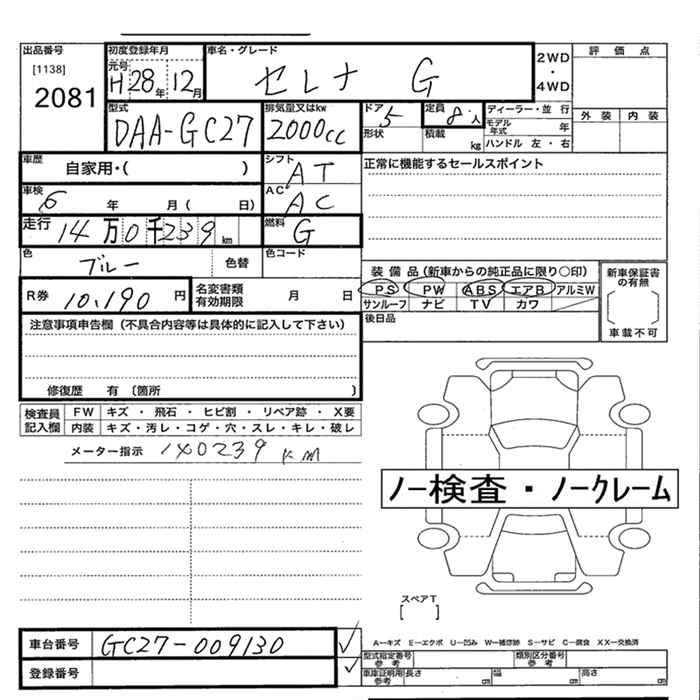 出品番号 初度登録年月 車名・グレード 2WD ・ 4WD 評価点
[1138] 元号 H 28年 12月 セレナ G
2081
型式 排気量又はkw ドア 5 定員 8人 ディーラー・並行 外装 内装
DAA-GC27 2000cc 形状 積載 kg モデル年式 年
ハンドル 左・右
車歴 自家用・( ) シフト AT 正常に機能するセールスポイント
車検 6年 月( 日) AC AC
走行 14万0千239km 燃料 G
色 ブルー 色替 色コード
装備品(新車からの純正品に限り○印) 新車保証書の有無
R券 10,190円 名変書類有効期限 月 日 PS PW ABS エアB アルミW
サンルーフ ナビ TV カワ
注意事項申告欄(不具合内容等は具体的に記入して下さい) 後日品 車載不可
修復歴 有 〔箇所 〕
検査員記入欄 FW キズ・飛石・ヒビ割・リペア跡・X要
内装 キズ・汚レ・コゲ・穴・スレ・キレ・破レ
メーター指示 140239 KM
ノー検査・ノークレーム
スペアT
[ ]
車台番号 GC27-009130 A-キズ E-エクボ U-凹み W-補修跡 S-サビ C-腐食 XX-交換済
型式指定番号 参考 類別区分番号 参考
登録番号 車庫証明用 参考 長さ cm 幅 cm 高さ cm